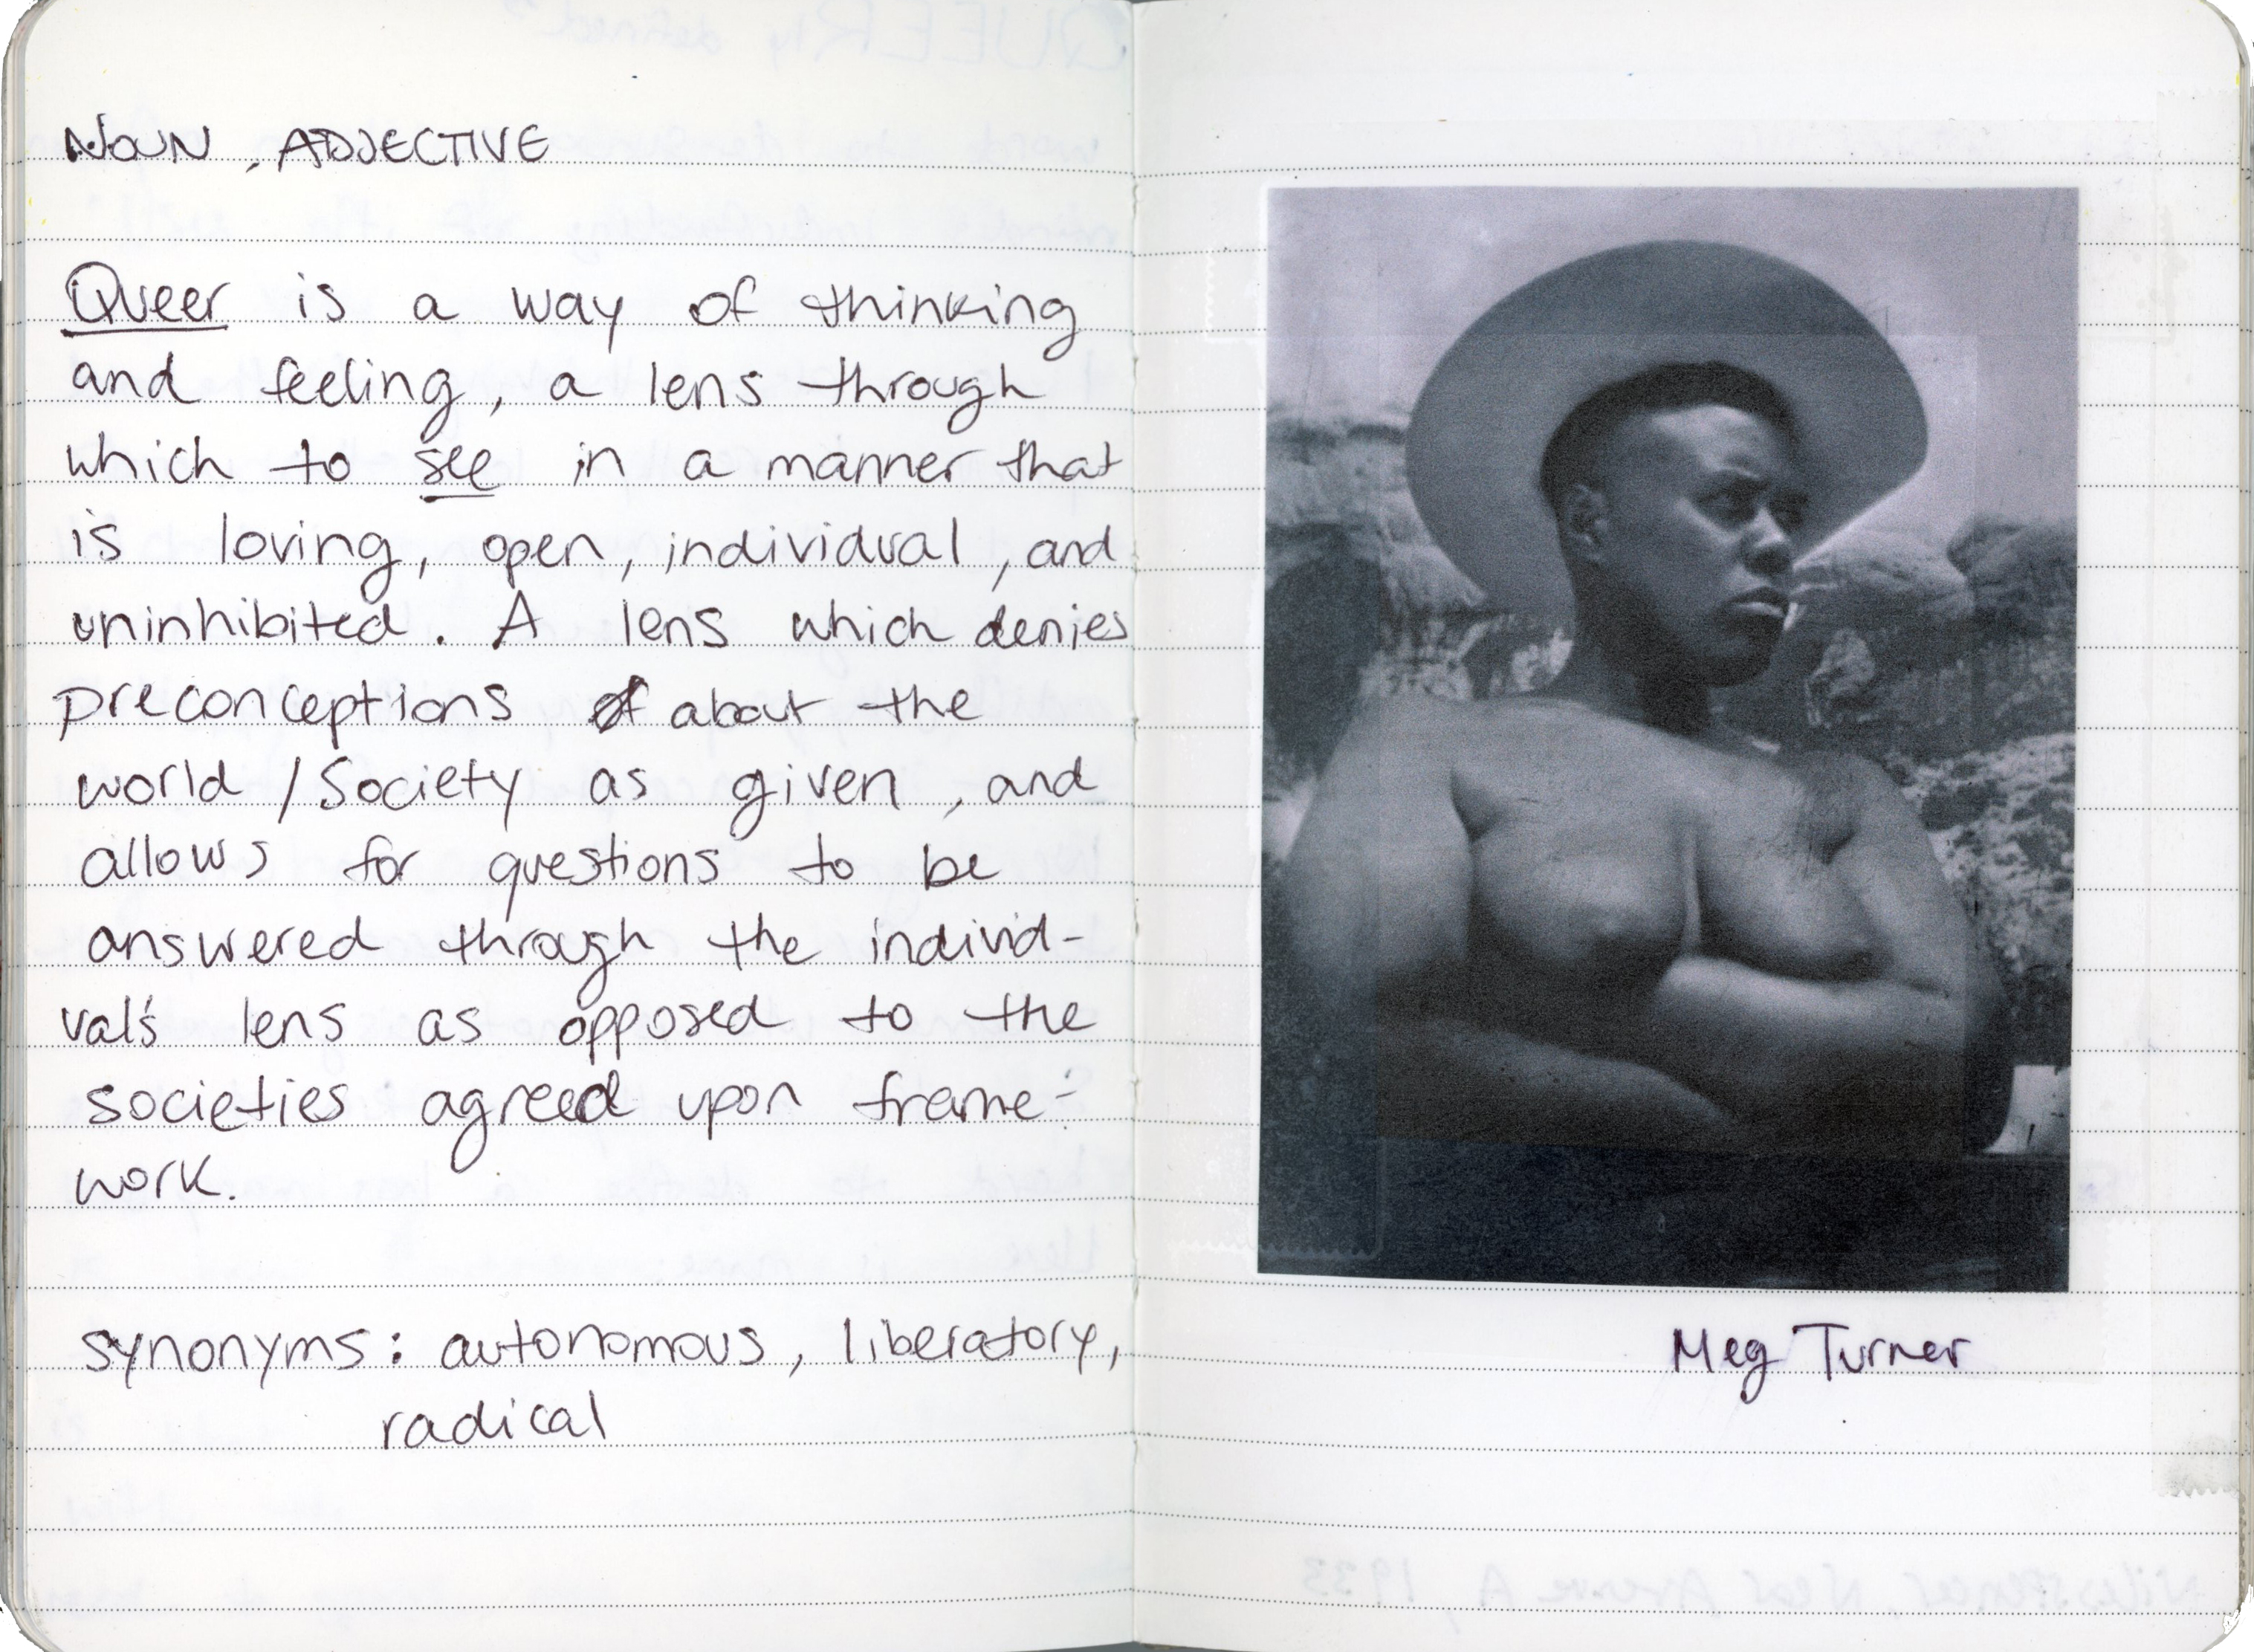 NOUN, ADJECTIVE
Queer is a way of thinking
and feeling, a lens through
which to see in a manner that
is loving, open, individual, and
uninhibited. A lens which denies
preconceptions of about the
world/Society as given, and
allows for questions to be
answered through the individ-
ual's lens as opposed to the
societies agreed upon frame-
work.
synonyms: autonomous, liberatory,
radical
Meg Turner